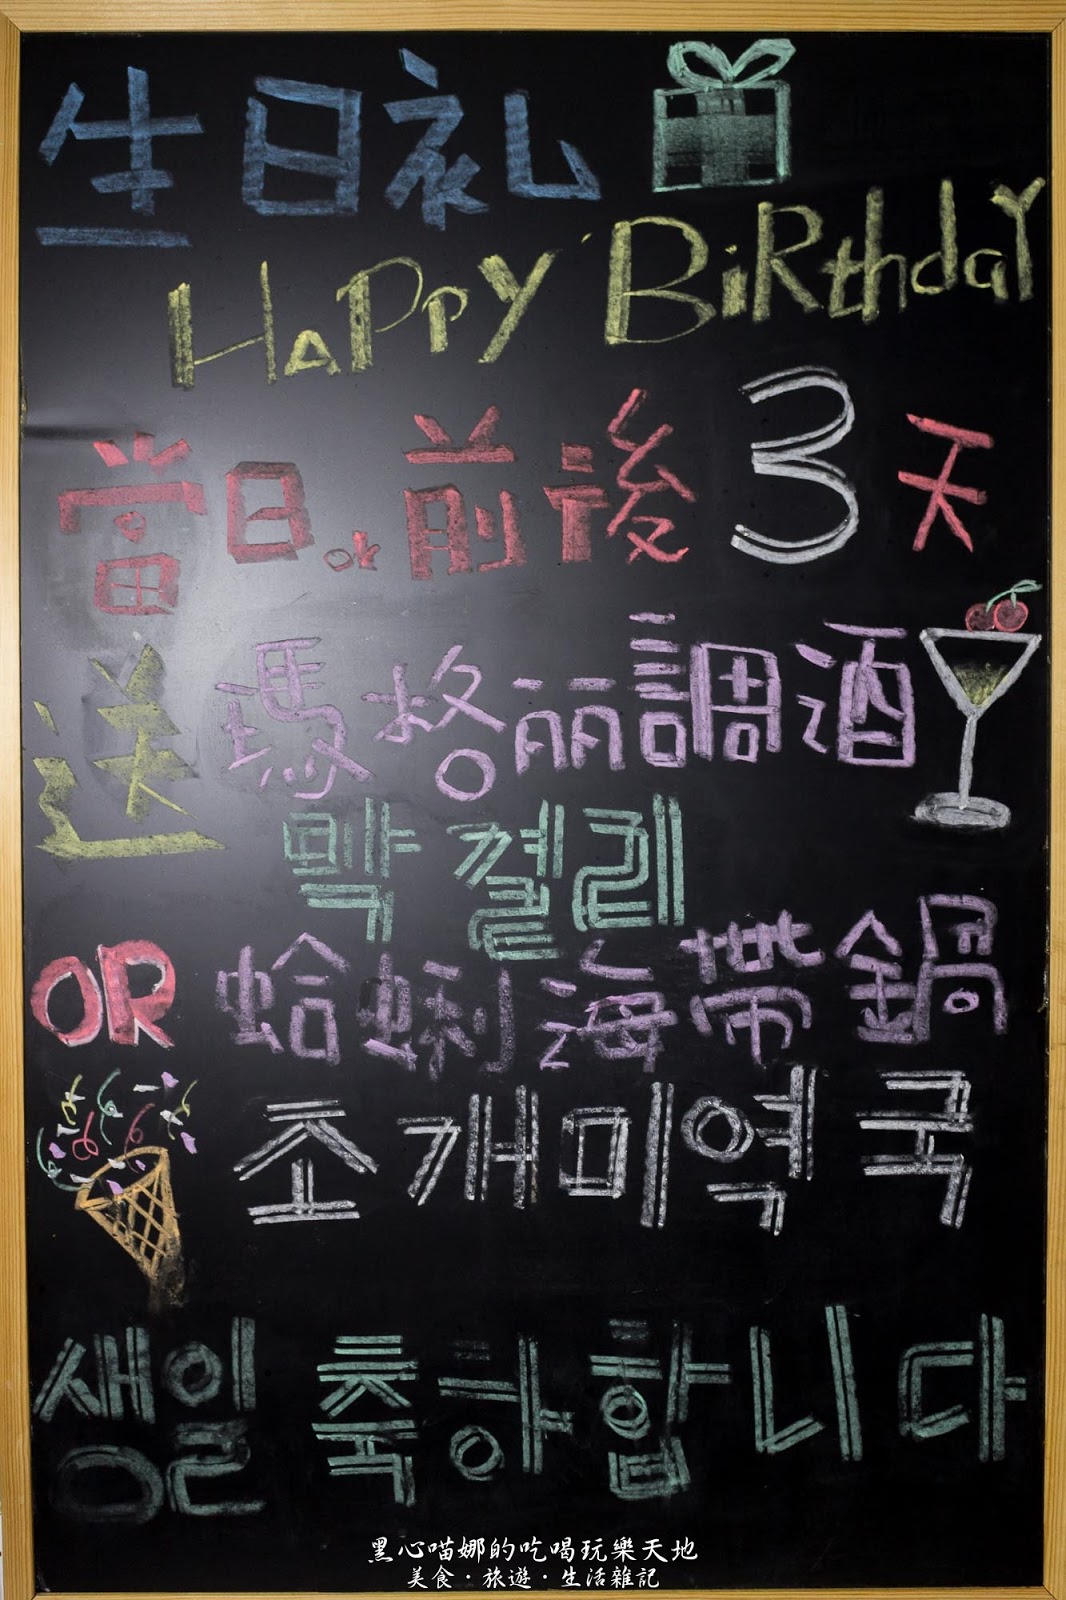 生日礼
HAPPY BiRthdaY
當日.or前後3天
送 瑪格丽調酒
막걸레
OR 蛤蜊海帶鍋
조개미역국
생일 축하합니다
黑心喵娜的吃喝玩樂天地
美食·旅遊·生活雜記